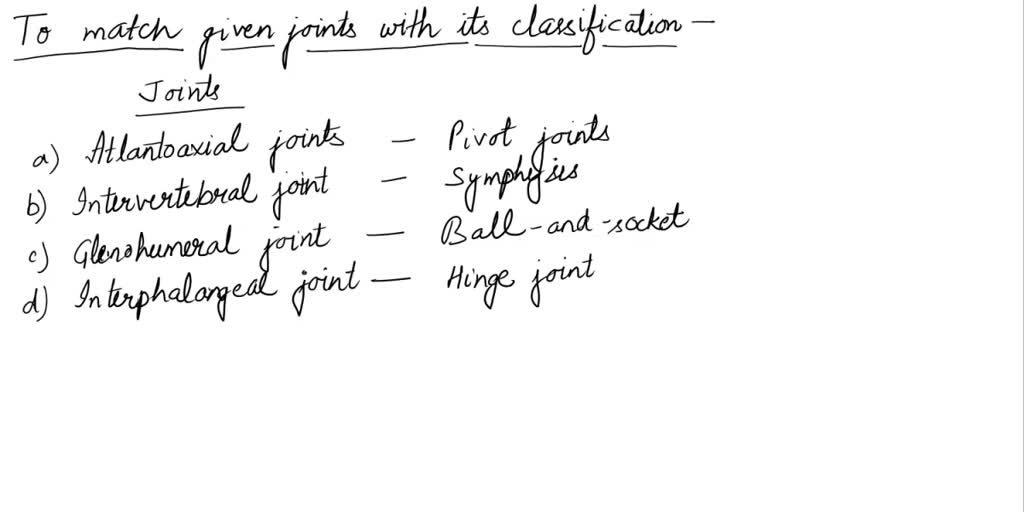 To match given joints with its classification —
Joints
a) Atlantoaxial joints — Pivot joints
b) Intervertebral joint — Symphysis
c) Glenohumeral joint — Ball-and-socket
d) Interphalangeal joint — Hinge joint